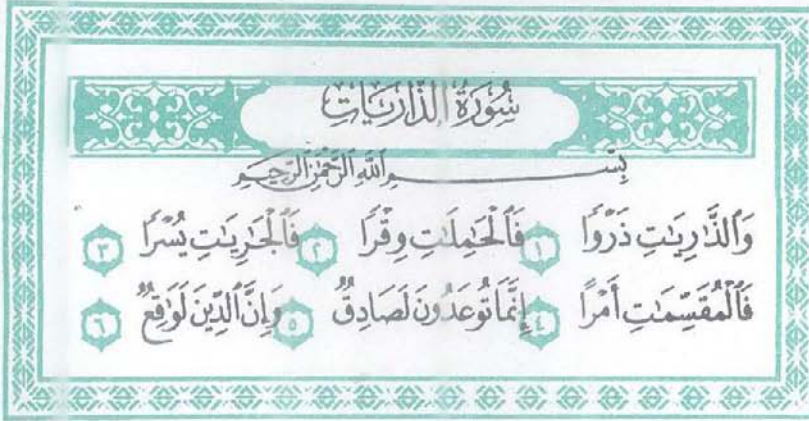 سُورَةُ الذَّارِيَاتِ
بِسْمِ ٱللَّهِ ٱلرَّحْمَٰنِ ٱلرَّحِيمِ
وَٱلذَّٰرِيَٰتِ ذَرْوًا ١ فَٱلْحَٰمِلَٰتِ وِقْرًا ٢ فَٱلْجَٰرِيَٰتِ يُسْرًا ٣
فَٱلْمُقَسِّمَٰتِ أَمْرًا ٤ إِنَّمَا تُوعَدُونَ لَصَادِقٌ ٥ وَإِنَّ ٱلدِّينَ لَوَٰقِعٌ ٦